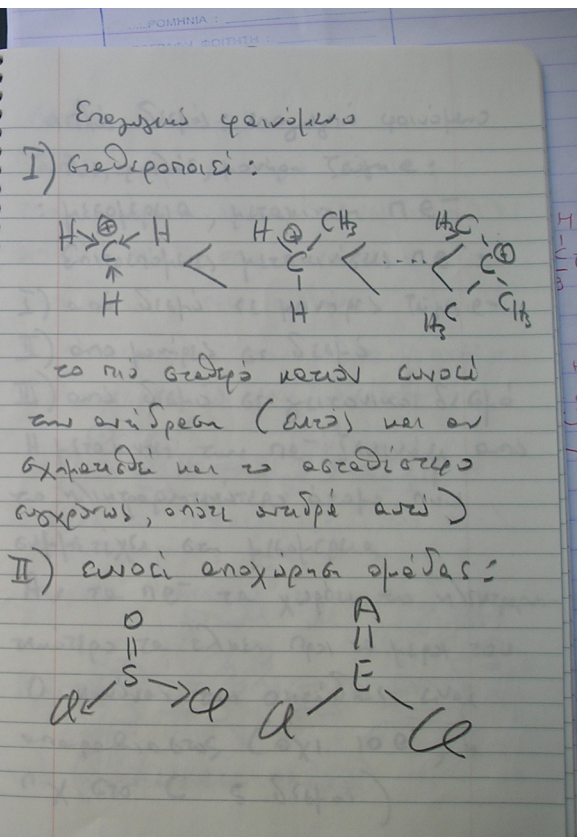 ΡΟΜΗΝΙΑ :
Επαγωγικό φαινόμενο
I) σταθεροποιεί :
H ⊕ H < H ⊕ CH₃ < ..... < H₃C ⊕
C C C
H H H₃C CH₃
το πιο σταθερό κατιόν ευνοεί
την αντίδραση (εκτός και αν
σχηματισθεί και το ασταθέστερο
συγχρόνως, οπότε αντιδρά αυτό)
II) ευνοεί αποχώρηση ομάδας :
O A
|| ||
S E
Cl Cl Cl Cl